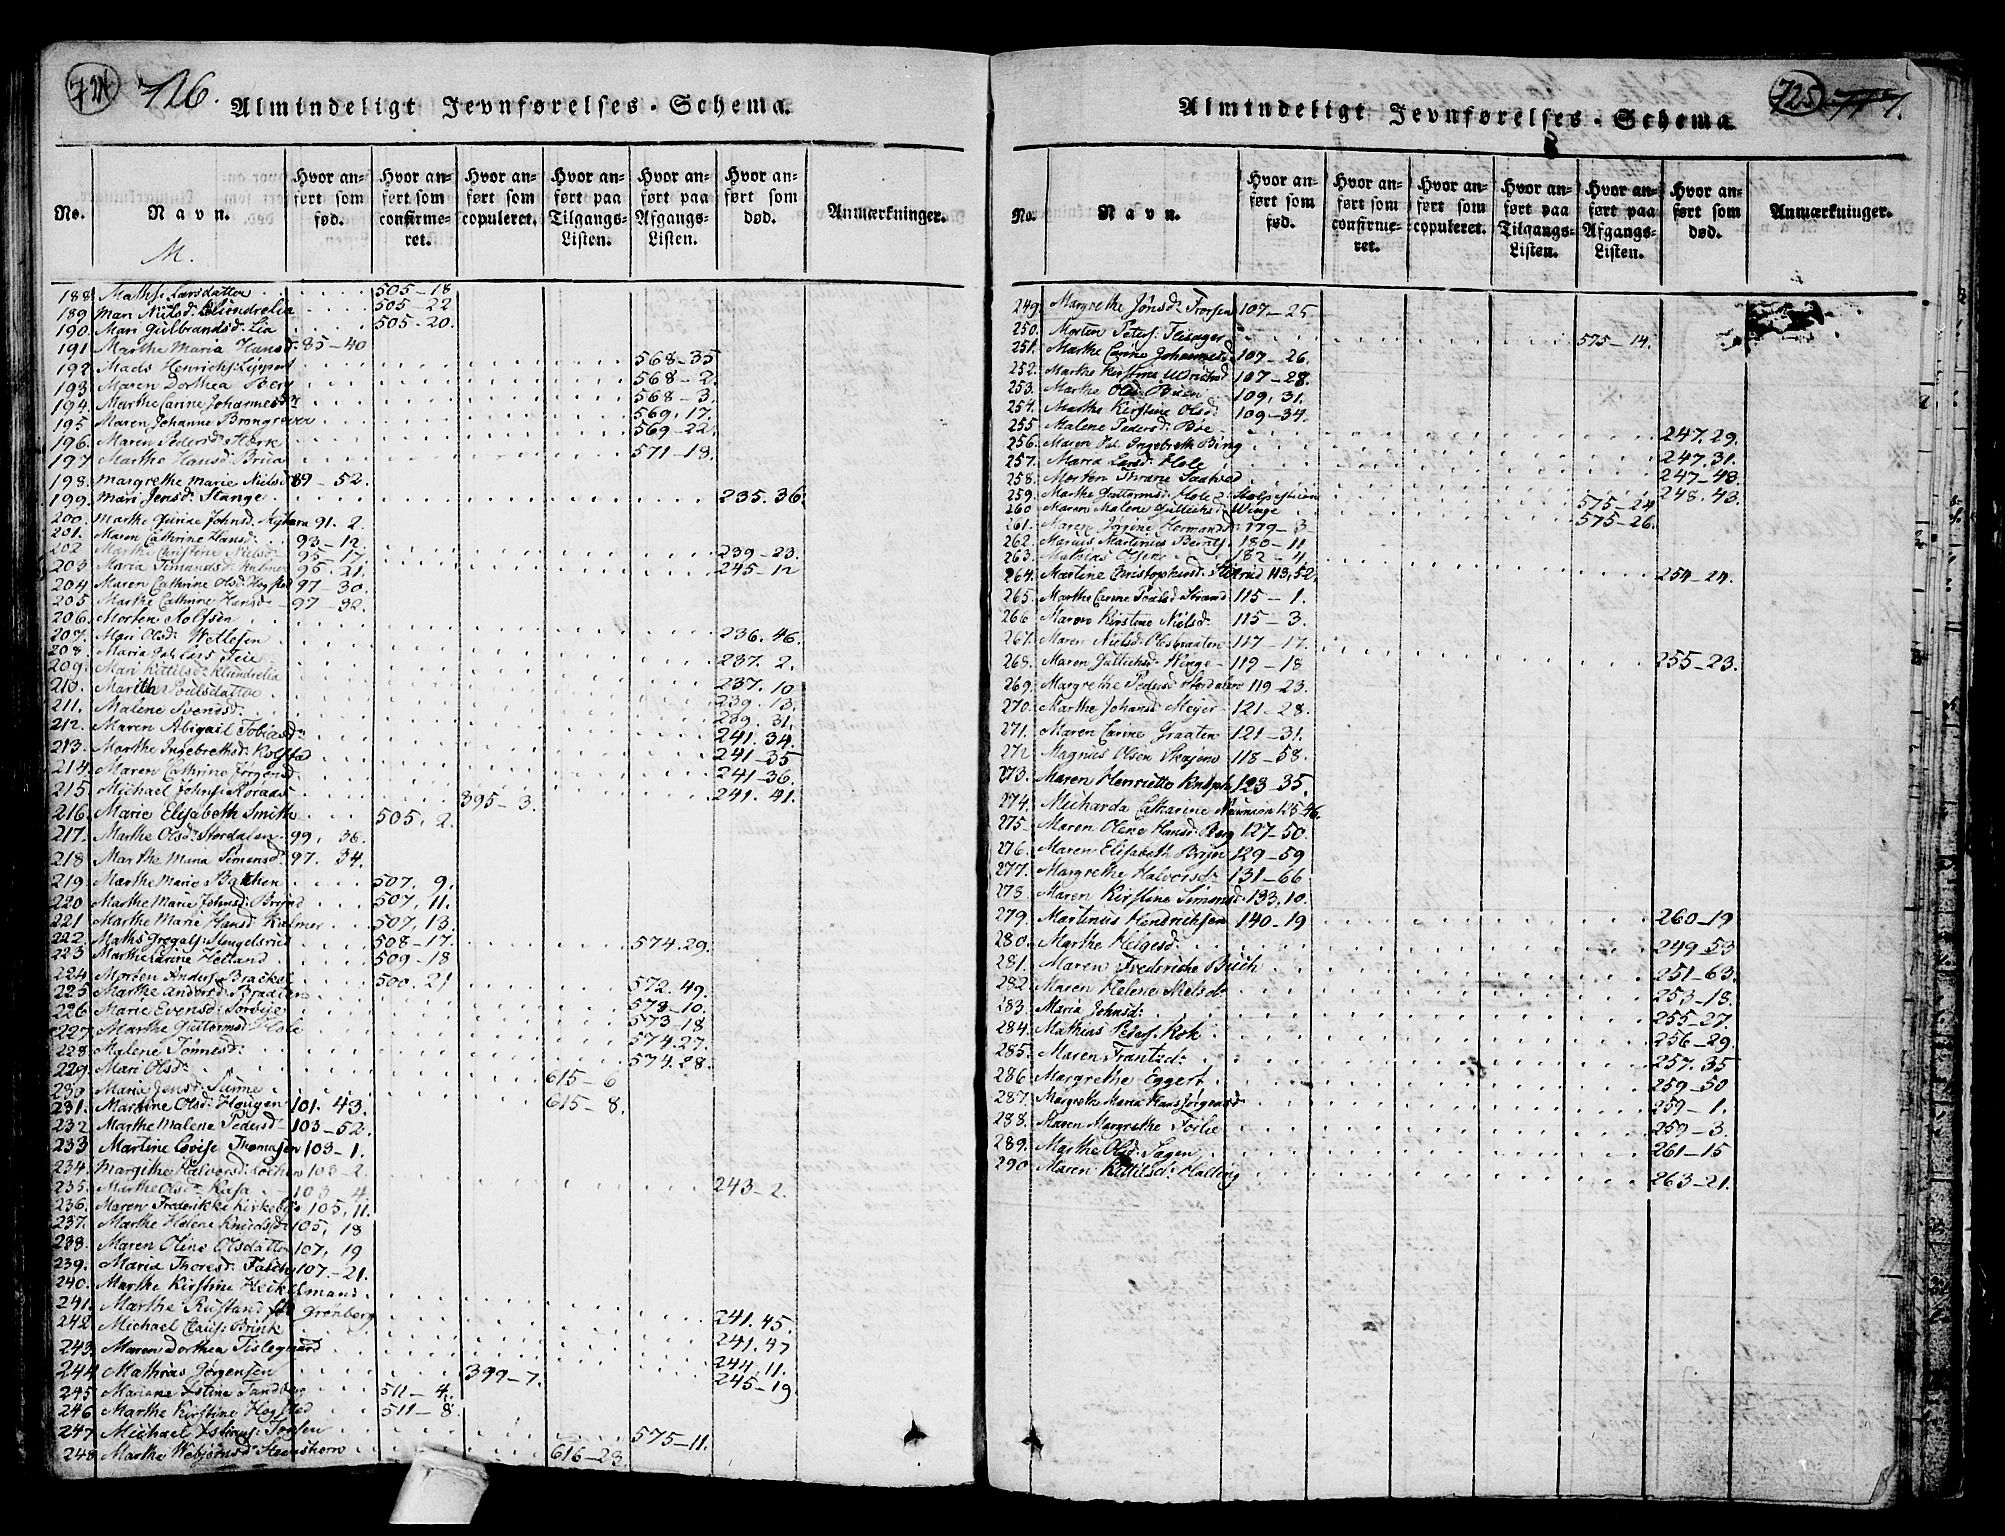 724 726.
Almindeligt Jevnførelses-Schema.
No.
Navn.
M.
Hvor anført som fød.
Hvor anført som confirmeret.
Hvor anført som copuleret.
Hvor anført paa Tilgangs-Listen.
Hvor anført paa Afgangs-Listen.
Hvor anført som død.
Anmærkninger.
188 Maths Larsdatter 505-18
189 Mari Nilsd: Klundrelia 505-22
190. Mari Gulbrandsd. Lia 505-20.
191 Marthe Maria Hansd: 85-40
192 Mads Henrichs: Lippert 568-35
193 Maren Dorthea Berg 568-2.
194. Marthe Carine Johannesd: 568-3.
195 Maren Johanne 569, 17.
196. Maren Pedersd: Hørk 569-22.
197 Marthe Hansd: Brua 571-18.
198. Margrethe Marie Nielsd: 89-52.
199. Mari Jensd: Stange 235.36.
200. Marthe Gurine Johnsd. 91. 2.
201. Maren Cathrine Hansd: 93-12
202 Marthe Christine Nielsd: 95-17 239-23.
203 Maria Simensd: 95. 21. 245-12
204 Maren Cathrine Olsd: 97-30.
205 Marthe Cathrine Hansd: 97-32.
206. Morten Rolfsen 236. 46.
207. Mari Olsd: Wetlesen
208. Maria Lars Teie 237. 2.
209. Mari Kittilsd: Klundrelia
210. Marith Poulsdatter 237. 10
211. Malene Svendsd: 239. 13.
212. Maren Abigail Tobiasd: 239. 31.
213. Marthe Ingebrethsd: Kolstad 241. 34.
214. Maren Cathrine Jørgensd: 241-35
215. Michael Johns: Roraas 395-3. 241-36.
216. Marie Elisabeth Smith 505, 2. 241. 41.
217. Marthe Olsd: Stordalen 99, 36.
218 Marthe Maria Simensd: 97. 34.
219. Marthe Marie Bakken 507. 9.
220 Marthe Marie Johnsd: 507, 11.
221 Marthe Marie Hansd: Kalmer 507, 13.
222. Maths Gregas: Stengelsrud 508-17. 574.29.
223 Marthe Carine Helland 509-18
224 Morten Anders: Brackel 500. 21 572. 49.
225 Marthe Andersd: Braaten 578-10.
226 Marie Evensd: Sorbye 573-18
227 Marthe Guttormsd: Hole 574.27.
228 Malene Tønnesd: 574.28.
229. Mari Olsd: 615-6
230 Maria Jensd: 615-8.
231. Martine Olsd: Hougen 101. 43.
232 Marthe Malene Pedersd: 103-52.
233 Martine Lovise Thomasen 103-1.
234. Margithe Halvorsd: 103-2.
235. Marthe Olsd: Rasa 103. 4. 243-2.
236. Maren Frederikke Kirkebye 105, 11.
237. Marthe Helene Knudsd: 105, 18
238. Maren Oline Olsdatter 107, 19
239. Maria Thoresd: 107-21.
240. Marthe Kirstine Heckelmand
241. Marthe Rustand Grønberg 241.45.
242. Michael Claus: Brink 241.47
243. Maren Dorthea Tislegaard 244.11.
244 Mathias Jørgensen 399-7. 245-19
245 Mariane Tandberg 511-4.
246 Marthe Kirstine Hogsted 511-8.
247 Michael 575-11.
248 Marthe Webjørnsd: 616-23.
725 717.
Almindeligt Jevnførelses-Schema.
No.
Navn.
Hvor anført som fød.
Hvor anført som confirmeret.
Hvor anført som copuleret.
Hvor anført paa Tilgangs-Listen.
Hvor anført paa Afgangs-Listen.
Hvor anført som død.
Anmærkninger.
249. Margrethe Jønsd: Frorsen 107-25
250. Morten Peters: 575-14.
251. Marthe Carine Johannesd: 107-26.
252. Marthe Kirstine Ulrichsd 107-28.
253. Marthe Olsd: Buen 109, 31.
254. Marthe Kirstine Olsd: 109-34.
255 Malene Pedersd: Bøe 247.29.
256. Maren Ingebreth Bing 247.31.
257. Maria Larsd: Hole 247-43.
258. Morten Thrane Saatved 248. 43.
259. Marthe Guttormsd: Hole 575-24
260 Maren Malene Gullichsd: Winge 575-26.
261. Maren Jørgine Hermansd: 179-3.
262. Marius Martinus Bernts: 180-11
263. Mathias Olsen 182-4. 254-24.
264. Martine Christophersd: 113, 52.
265. Marthe Carine Poulsd Strand 115-1.
266 Maren Kirstine Nielsd: 115-3.
267. Maren Nielsd: Olesbraaten 117-17. 255-23.
268. Maren Gullichsd: Winge 119-18
269. Margrethe Pedersd Stordalen 119-23.
270. Marthe Johansd Meyer 121-28.
271. Maren Carine Graaten 121-31.
272 Magnus Olsen Skojen 118-58.
273. Maren Henriette 123-35.
274. Micharda Catharine 125-46.
275- Maren Olene Hansd: Berg 127-50.
276. Maren Elisabeth Bryn 129-59
277. Margrethe Halvorsd: 131-66
278 Maren Kirstine Simonsd 133.10.
279. Martinus Hendrichsen 140-19 260-19
280. Marthe Helgesd: 249-53
281. Maren Frederiche Buch 251-63.
282 Maren Helene Nielsd: 253-18.
283. Maria Johnsd: 255-27.
284. Mathias Peders: Rok 256-29.
285. Maren Frantzd: 257. 35
286. Margrethe Eggert 259-50
287. Margrethe Maria Hans Jørgensd 259-1.
288. Karen Margrethe Foilie 259-3.
289. Marthe Olsd: Sagen 261-15
290 Maren Kittilsd: Halling 263-21.